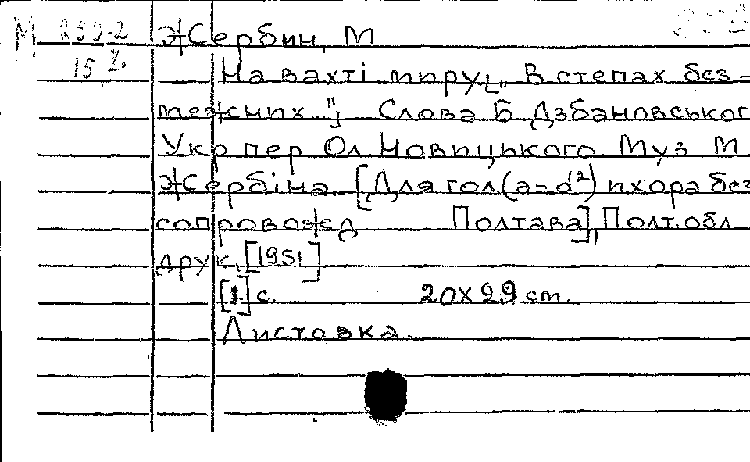 М 259-2 Жербин, М
15 Z. На вахті миру, [„ В степах без-
межних "], Слова Б Дзбановського
Укр пер Ол Новицького Муз М
Жербіна [Для гол (a=d²) п хора без
сопровожд Полтава], Полт.обл
друк, [1951]
[1] с. 20x29 cm.
Листовка